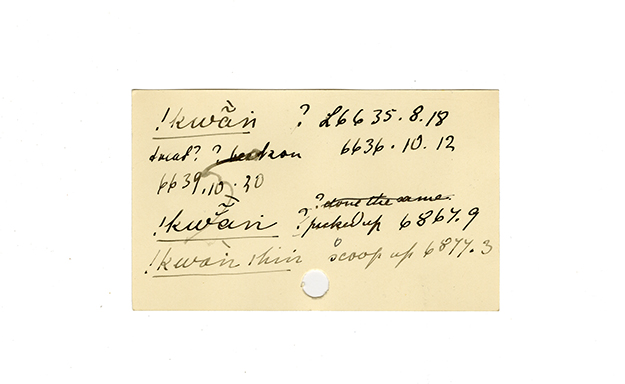 !kwã̀n ? L6635.8.18
tread? ? beckon 6636.10.12
6639.10.20
? done the same.
!kwã̀n ? picked up 6867.9
!kwàn ǀhin scoop up 6877.3